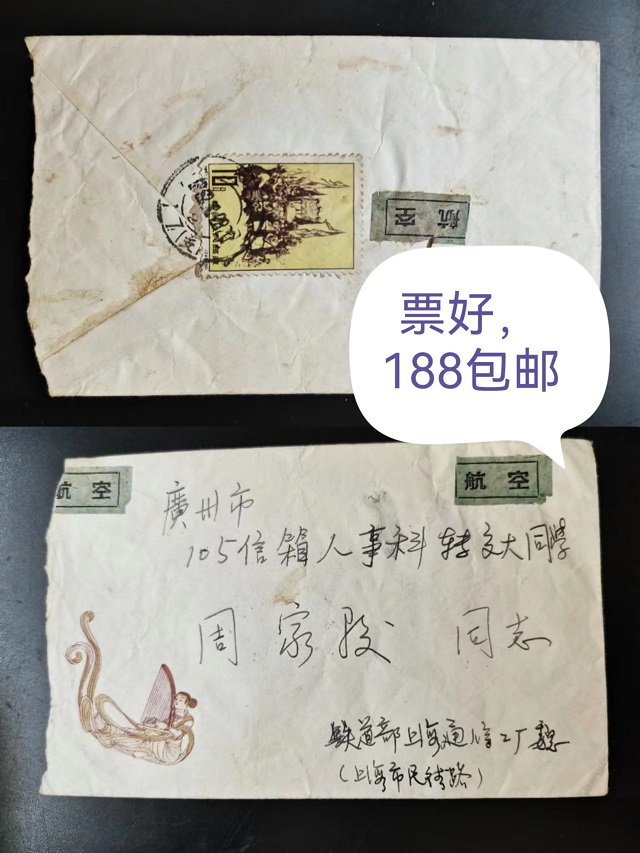 航空
票好，
188包邮
航空
航空
廣州市
105信箱人事科转交大同学
周家
同志
铁道部上海通信工厂
（上海市民德路）